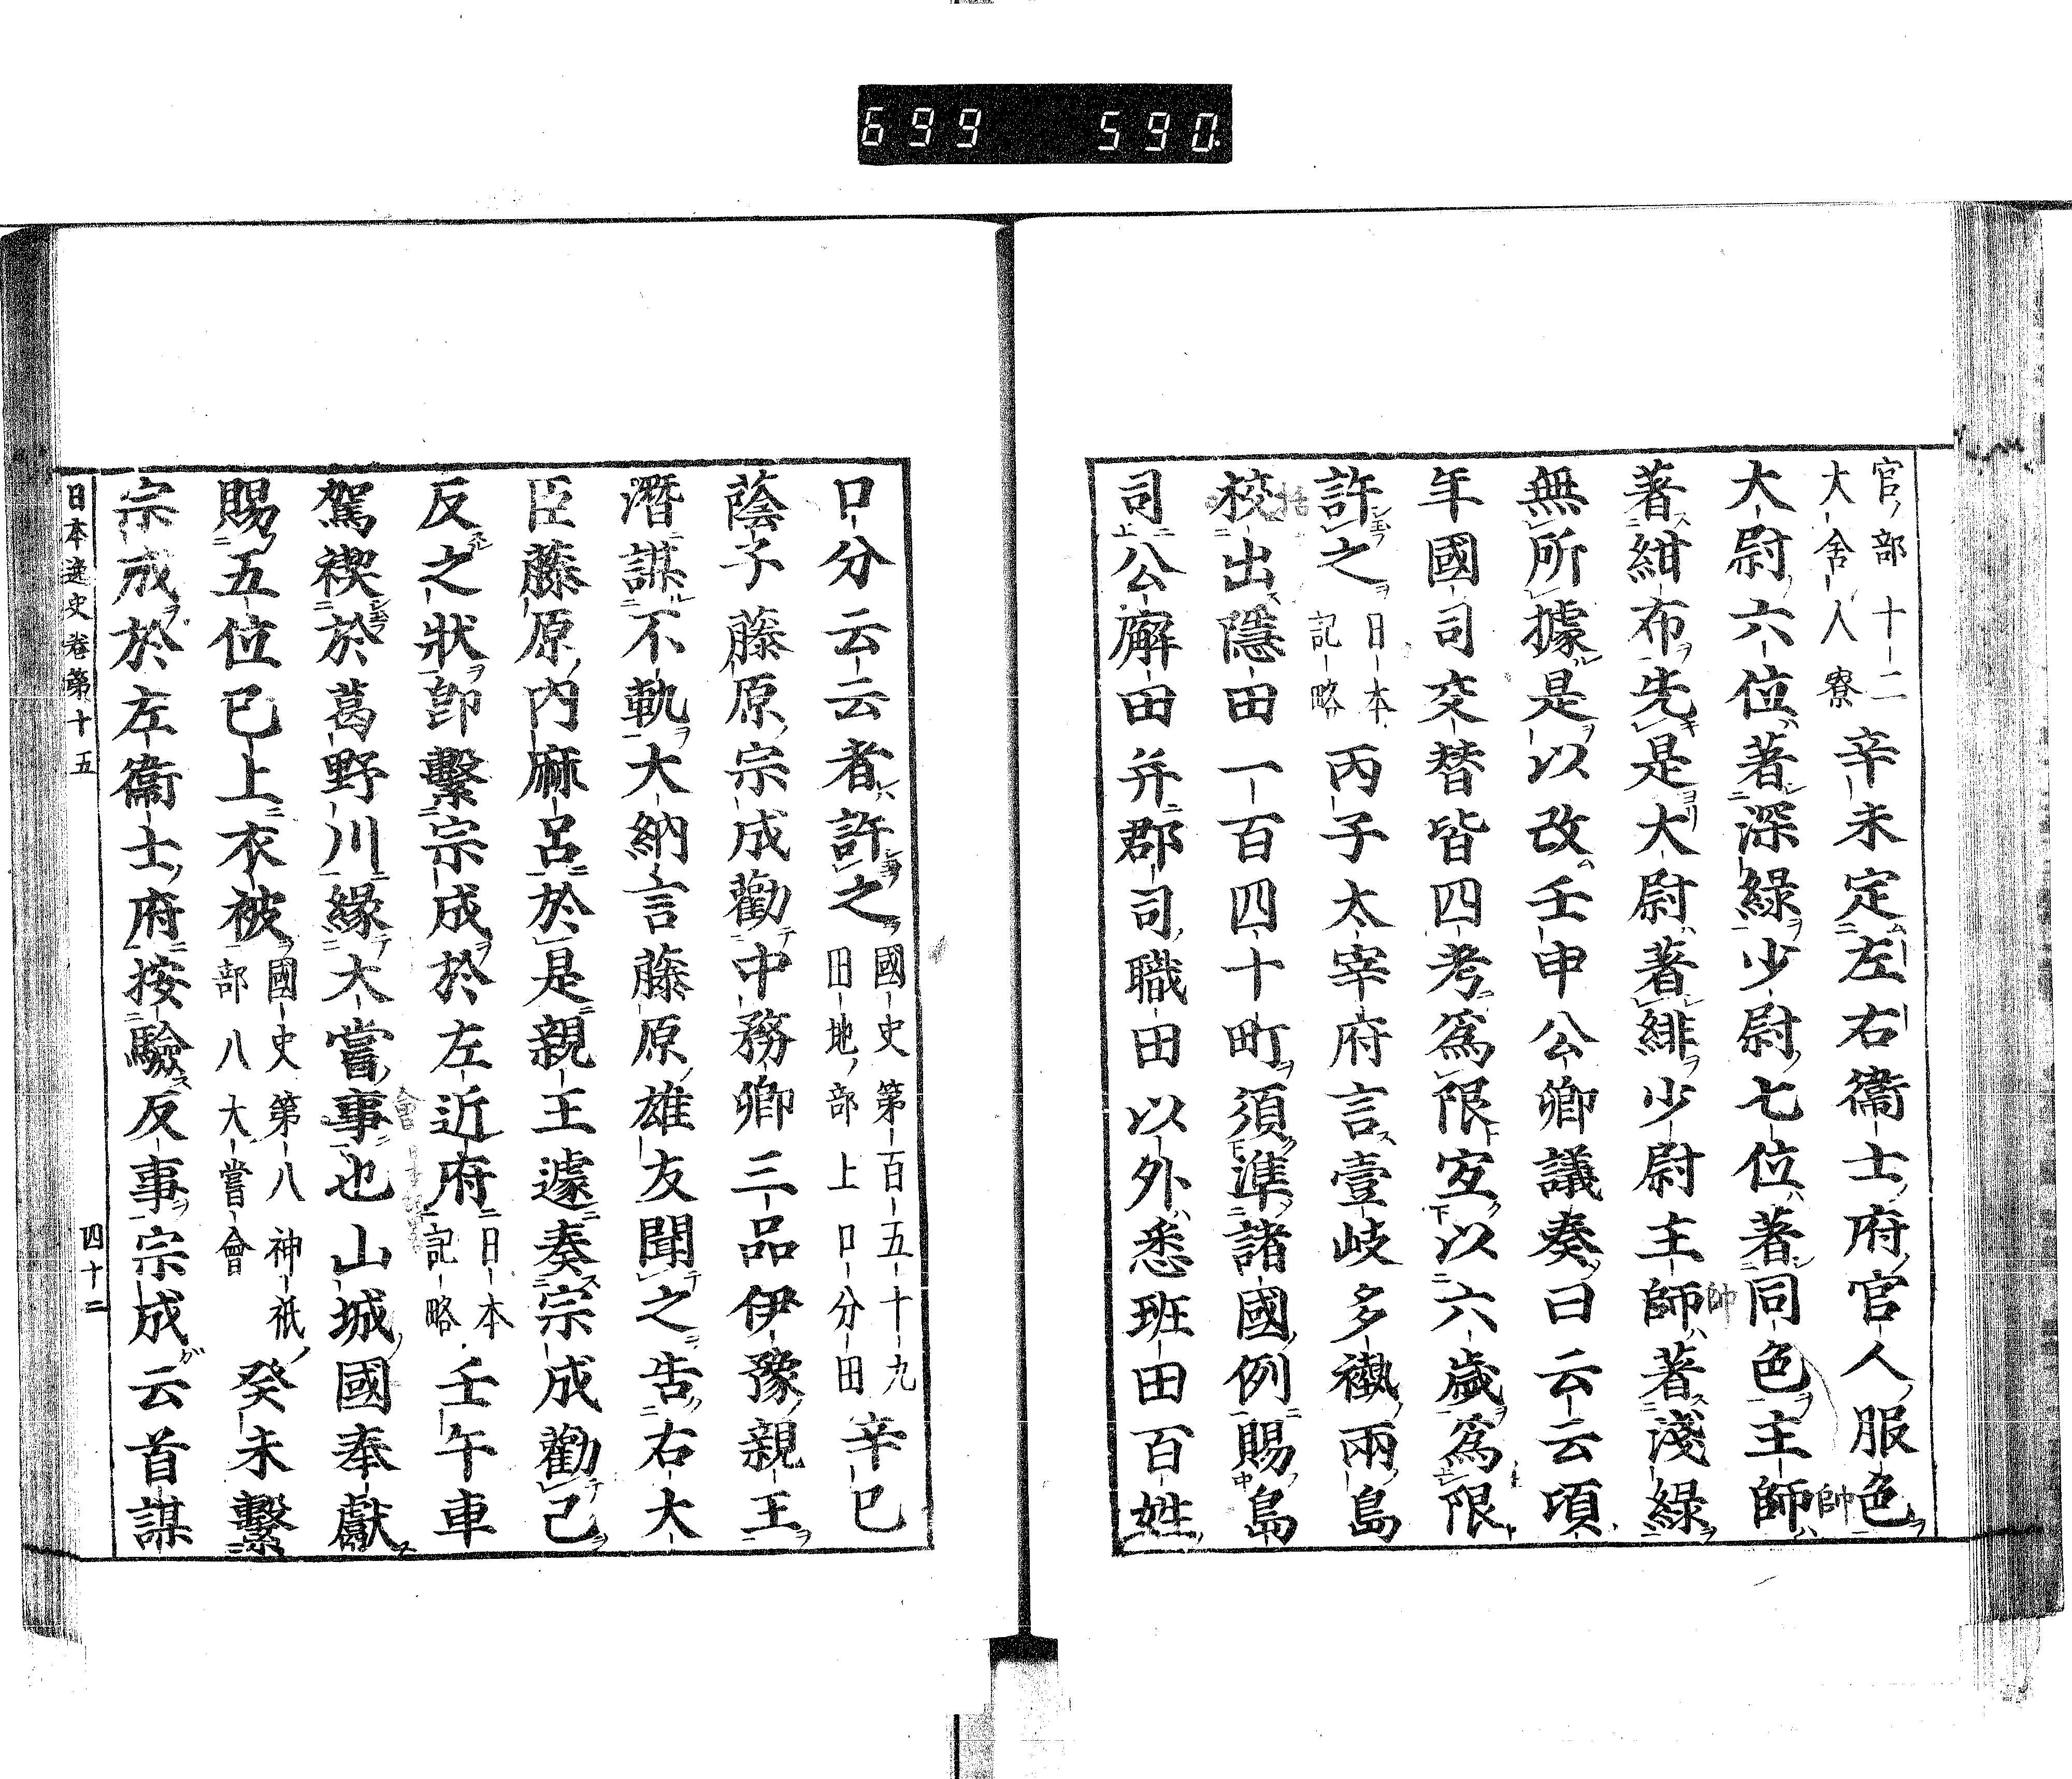 699 590
官部十二
大舍人寮
辛未定左右衞士府官人服色
大尉六位著深綠少尉七位著同色主師
著紺布先是大尉著緋少尉主師著淺綠
無所據是以改壬申公卿議奏曰云云項
年國司交替皆四考爲限宜以六歲爲限
許之
日本
記略
丙子太宰府言壹岐多褹兩島
校出隱田一百四十町須準諸國例賜島
司公廨田并郡司職田以外悉班田百姓
口分云云者許之
國史第百五十九
田地部上口分田
辛巳
蔭子藤原宗成勸中務卿三品伊豫親王
潛謀不軌大納言藤原雄友聞之告右大
臣藤原內麻呂於是親王遽奏宗成勸己
反之狀卽繫宗成於左近府
日本
記略
壬午車
駕禊於葛野川緣大嘗事也山城國奉獻
賜五位已上衣被
國史第八神祇
部八大嘗會
癸未繫
宗成於左衞士府按驗反事宗成云首謀
日本逸史卷第十五 四十二
帥
帥
會